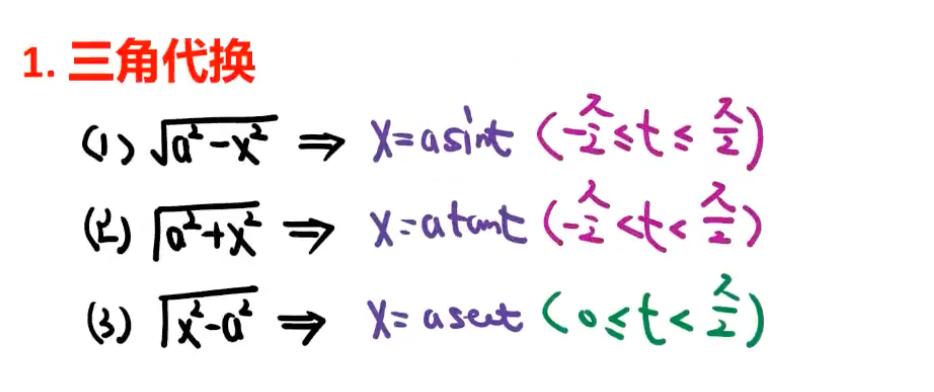 1. 三角代换
(1) √(a²-x²) ⇒ x=asint (-π/2≤t≤π/2)
(2) √(a²+x²) ⇒ x=atant (-π/2<t<π/2)
(3) √(x²-a²) ⇒ x=asect (0≤t<π/2)